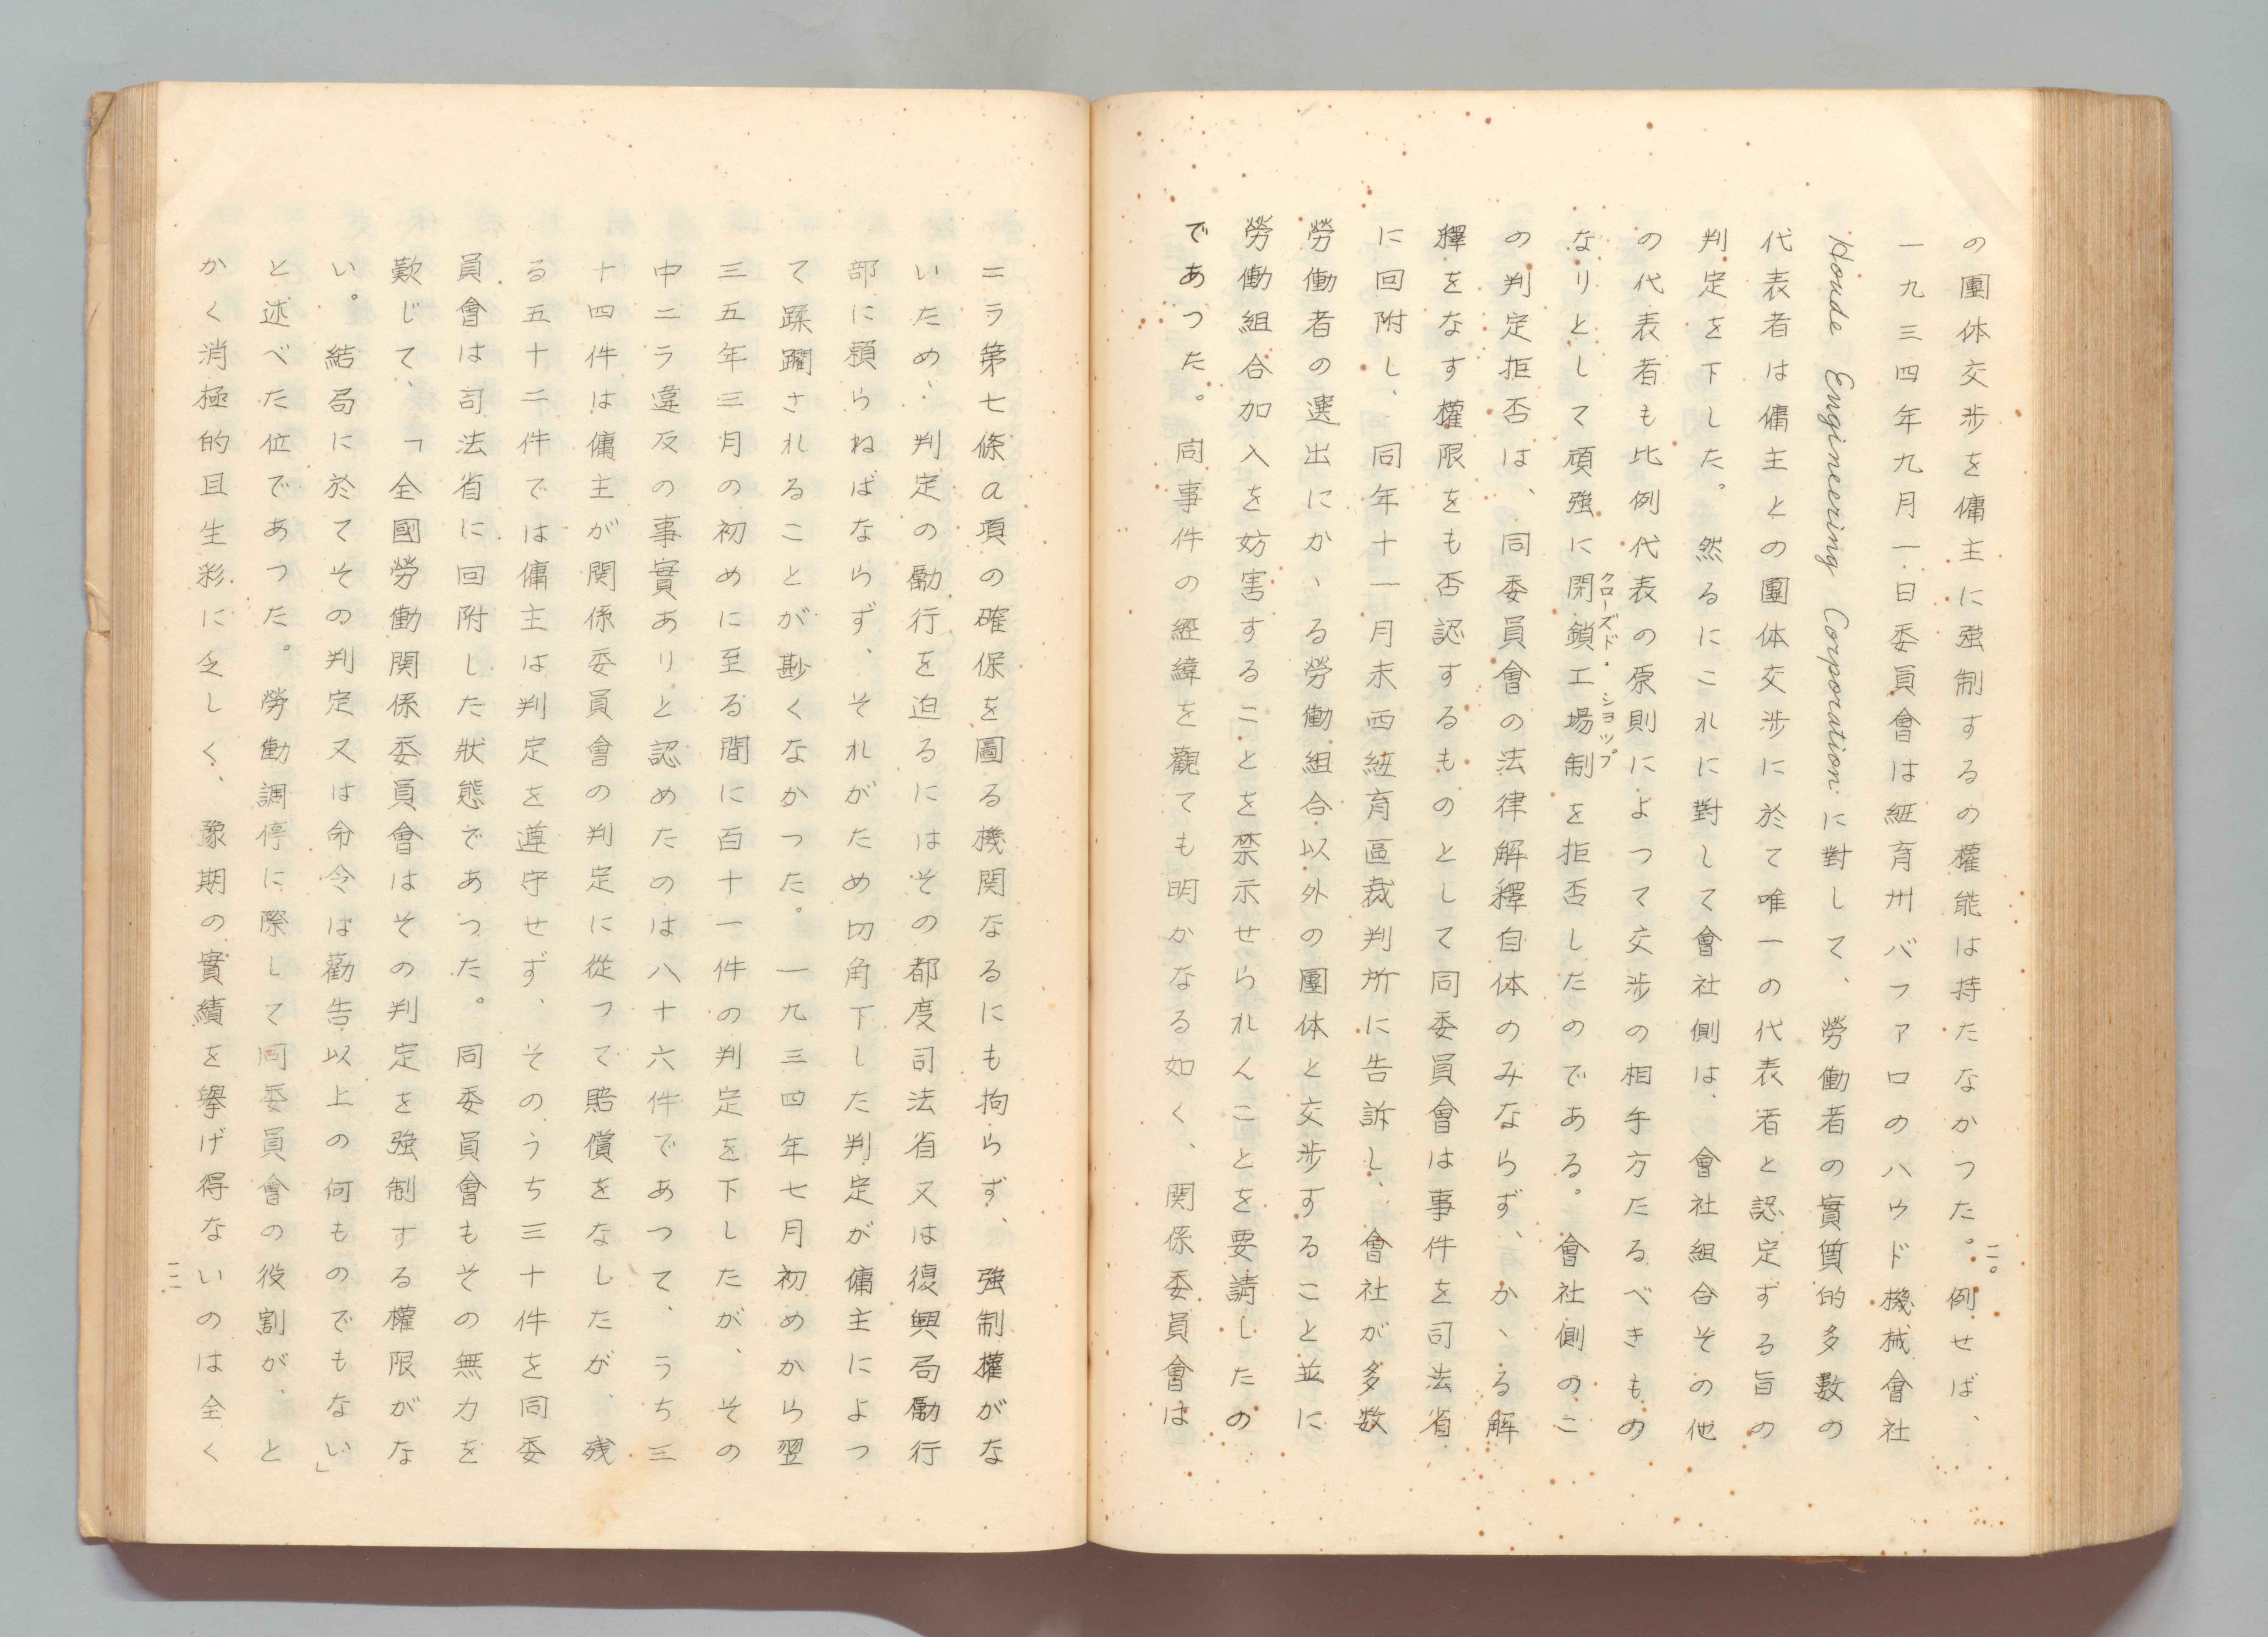 の團体交渉を傭主に強制するの權能は持たなかつた。例せば、
一九三四年九月一日委員會は紐育州バファロのハウド機械會社
Houde Engineering Corporationに對して、勞働者の實質的多數の
代表者は傭主との團体交渉に於て唯一の代表者と認定する旨の
判定を下した。然るにこれに對して會社側は、會社組合その他
の代表者も比例代表の原則によつて交渉の相手方たるべきもの
なりとして頑強に閉鎖工場制を拒否したのである。會社側のこ
クローズド・ショップ
の判定拒否は、同委員會の法律解釋自体のみならず、かゝる解
釋をなす權限をも否認するものとして同委員會は事件を司法省
に回附し、同年十一月末西紐育區裁判所に告訴し、會社が多数
勞働者の選出にかゝる勞働組合以外の團体と交渉すること並に
勞働組合加入を妨害することを禁示せられんことを要請したの
であつた。同事件の經緯を觀ても明かなる如く、関係委員會は
二〇
ニラ第七條a項の確保を圖る機関なるにも拘らず、強制權がな
いため、判定の勵行を迫るにはその都度司法省又は復興局勵行
部に頼らねばならず、それがため切角下した判定が傭主によつ
て蹂躙されることが尠くなかつた。一九三四年七月初めから翌
三五年三月の初めに至る間に百十一件の判定を下したが、その
中ニラ違反の事實ありと認めたのは八十六件であつて、うち三
十四件は傭主が関係委員會の判定に從つて賠償をなしたが、残
る五十二件では傭主は判定を遵守せず、そのうち三十件を同委
員會は司法省に回附した狀態であつた。同委員會もその無力を
歎じて、「全國勞働関係委員會はその判定を強制する權限がな
い。結局に於てその判定又は命令は勸告以上の何ものでもない」
と述べた位であつた。勞働調停に際して同委員會の役割が、と
かく消極的且生彩に乏しく、豫期の實績を擧げ得ないのは全く
二一